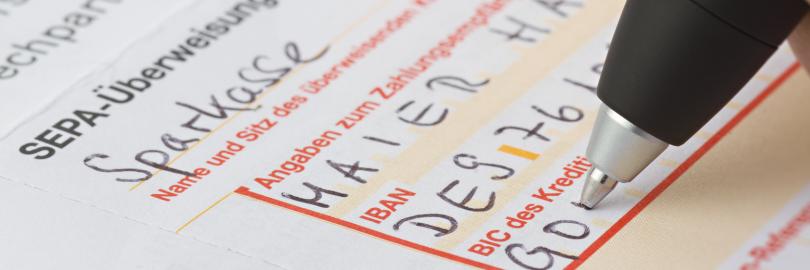 echpart
SEPA-Überweisung
Sparkasse
Name und Sitz des überweisenden
Angaben zum Zahlungsempfän
MAIER HA
IBAN
DE5176
BIC des Krediti
GO